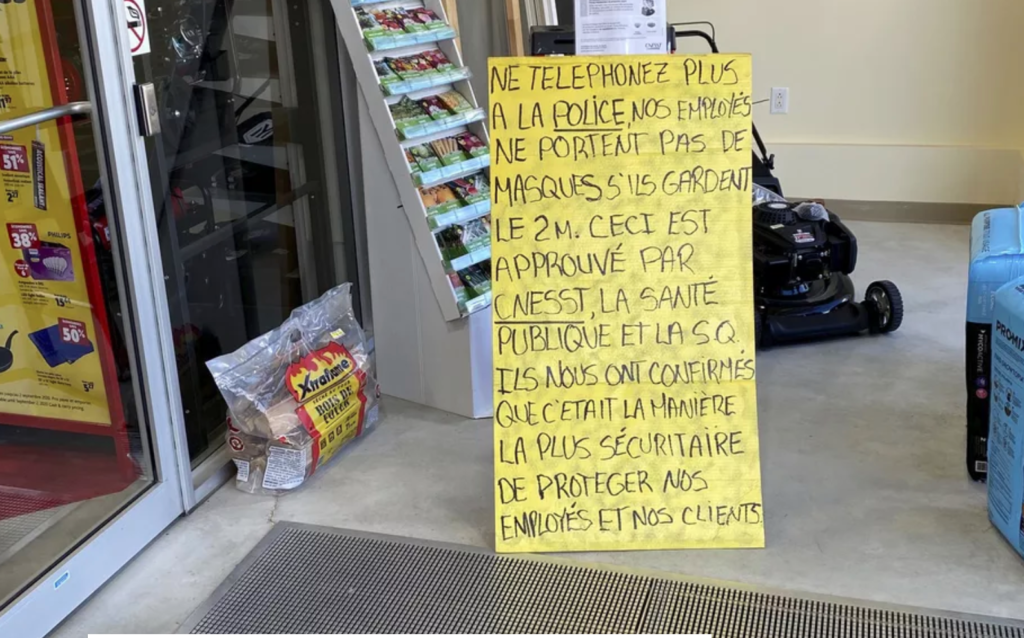 NE TELEPHONEZ PLUS
A LA POLICE, NOS EMPLOYÉS
NE PORTENT PAS DE
MASQUES S'ILS GARDENT
LE 2M. CECI EST
APPROUVÉ PAR
CNESST, LA SANTÉ
PUBLIQUE ET LA S.Q.
ILS NOUS ONT CONFIRMÉS
QUE C'ÉTAIT LA MANIÈRE
LA PLUS SÉCURITAIRE
DE PROTEGER NOS
EMPLOYÉS ET NOS CLIENTS.
51%
38%
PHILIPS
50%
Xtraflame
BOIS DE
FOYER
PROMIX
MYCOACTIVE
PROMIX